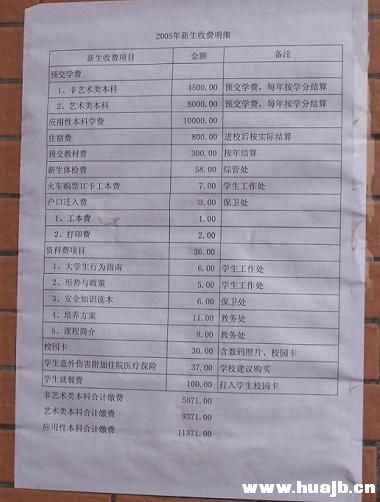 2005年新生收费明细
新生收费项目 金额 备注
预交学费
1、非艺术类本科 4500.00 预交学费，每年按学分结算
2、艺术类本科 8000.00 预交学费，每年按学分结算
应用性本科学费 10000.00
住宿费 800.00 进校后按实际结算
预交教材费 300.00 按年结算
新生体检费 58.00 综管处
火车购票IC卡工本费 7.00 学生工作处
户口迁入费 3.00 保卫处
1、工本费 1.00
2、打印费 2.00
资料费项目 36.00
1、大学生行为指南 6.00 学生工作处
2、形势与政策 5.00 学生工作处
3、安全知识读本 6.00 保卫处
4、培养方案 11.00 教务处
5、课程简介 8.00 教务处
校园卡 30.00 含数码照片、校园卡
学生意外伤害附加住院医疗保险 37.00 学校建议购买
学生就餐费 100.00 打入学生校园卡
非艺术类本科合计缴费 5871.00
艺术类本科合计缴费 9371.00
应用性本科合计缴费 11371.00
www.huajb.cn